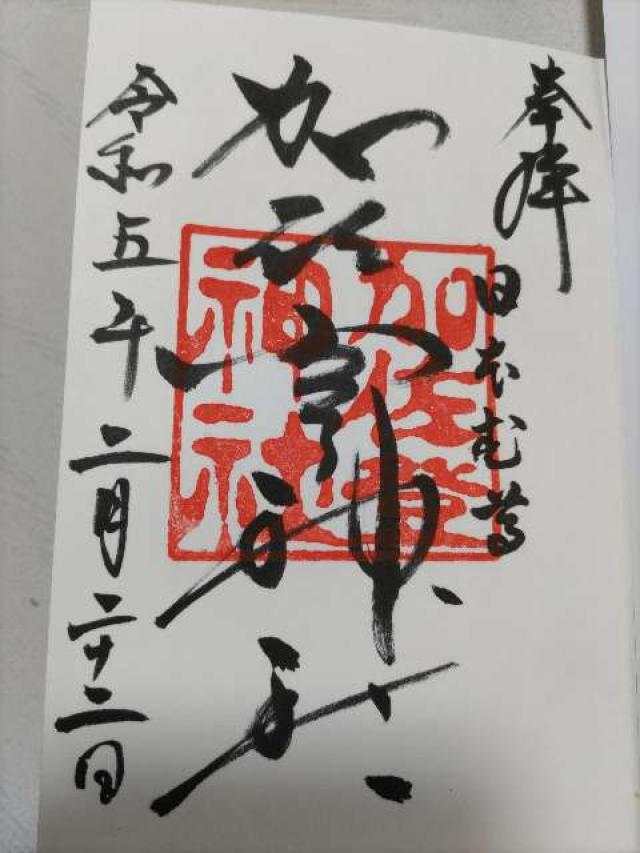 奉拝
日本武尊
加佐登神社
加佐登神社
令和五年二月二十二日